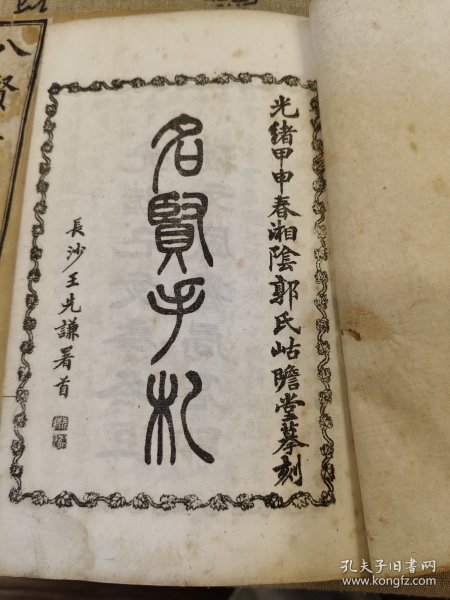 光緒甲申春湘陰郭氏岵瞻堂摹刻
名賢手札
長沙王先謙署首
八賢
孔夫子旧书网
www.kongfz.com